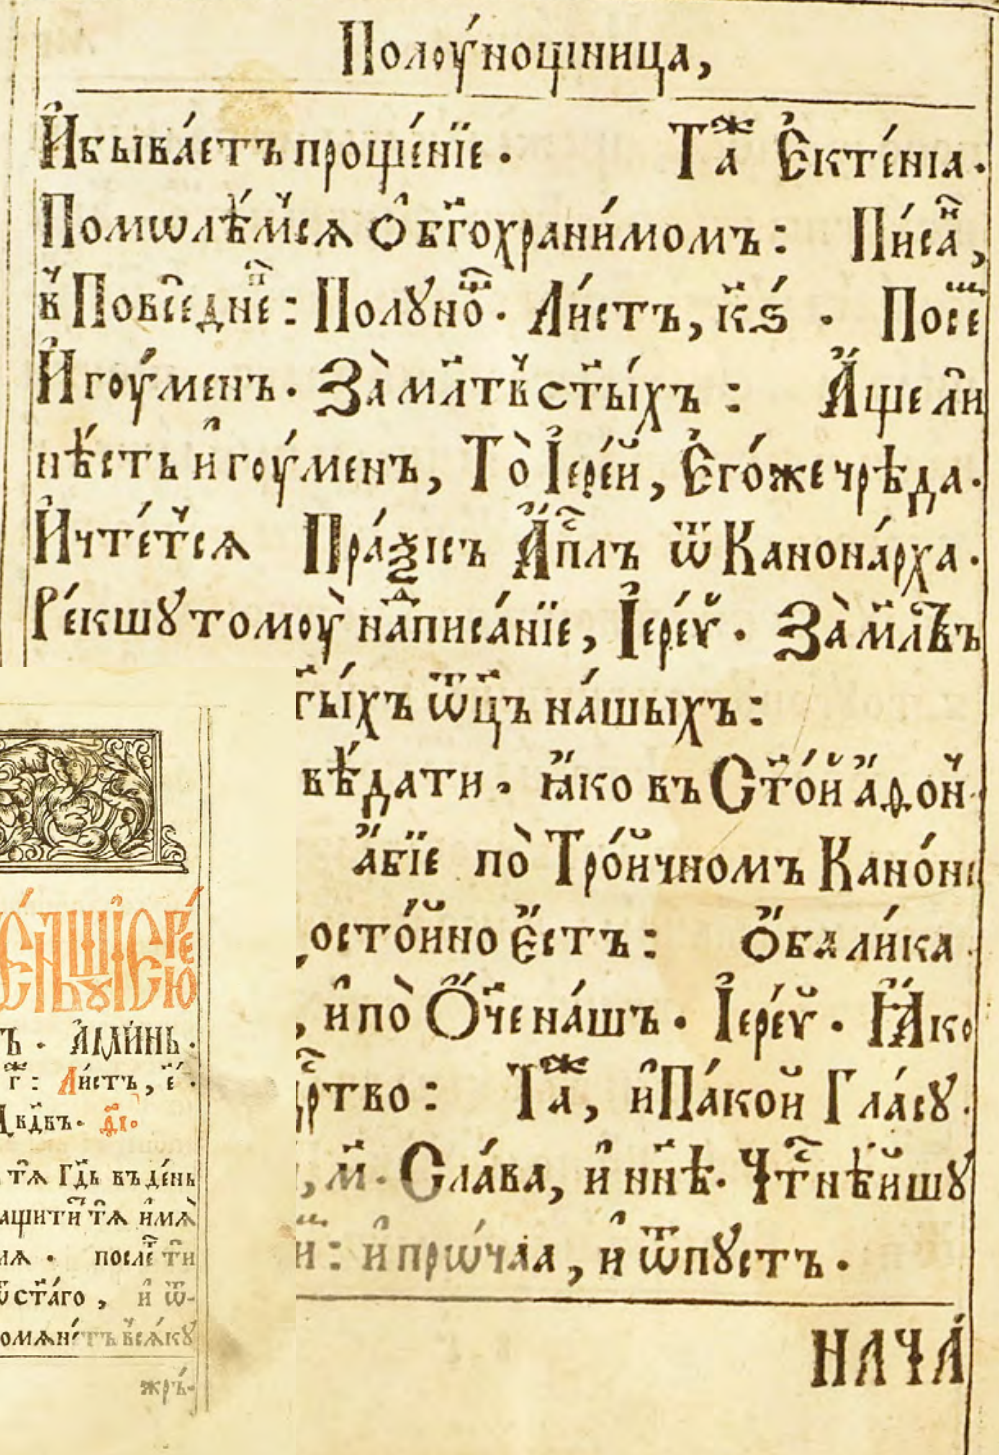 Полоу́нощница,
И҆быва́етъ проще́нїе. Та́ж Є҆ктенїа.
Помѡлѣ́мсѧ Ѡ҆ бг҃охрани́момъ: Пи́сан,
в҆ Повседне: Полꙋно́щ. Ли́стъ, к҃ѕ. Посе
И҆гоу́менъ. За̀ мл҃твъ ст҃ы́хъ: А҆́ще ли
нѣ́сть и҆гоу́менъ, То̀ І҆ере́й, Є҆го́же чрѣда.
И҆чте́тсѧ Пра́ѯисъ А҆пⷭ҇лъ ѿ Кано́на́рха.
Ре́кшꙋ томоу̀ написа́нїе, І҆ере́ѵ. За̀ мл҃твъ
ты́хъ ѿц҃ъ на́шыхъ:
вѣ́дати. ꙗ҆́ко въ Ст҃о́й а҆ѳо́н
а҆́бїе по̀ Тро́йчномъ Кано́н
осто́йно є҆́стъ: Ѻ҆́ба ли́ка.
, и҆ по̀ Ѻ҆́ч҃е на́шъ. І҆ере́ѵ. Ꙗ҆́ко
рⷭ҇тво: Та́ж, и҆ Па́кой Гла́сꙋ.
, м҃. Сла́ва, и҆ нн҃ѣ. Чⷭ҇тнѣ́йшꙋ
й: и҆ прѡ́чаа, и҆ ѿпꙋстъ.
НАЧА́
ъ. А҆МИ́НЬ.
г҃: Ли́стъ, є҃.
Дв҃двъ. д҃і.
тѧ Гдⷭ҇ь въ де́нь
ащитит тѧ и҆́мѧ
мѧ. после́т ти
ст҃а́го, и҆ ѿ-
омѧне́тъ всѧ́кꙋ
жрꙿ-